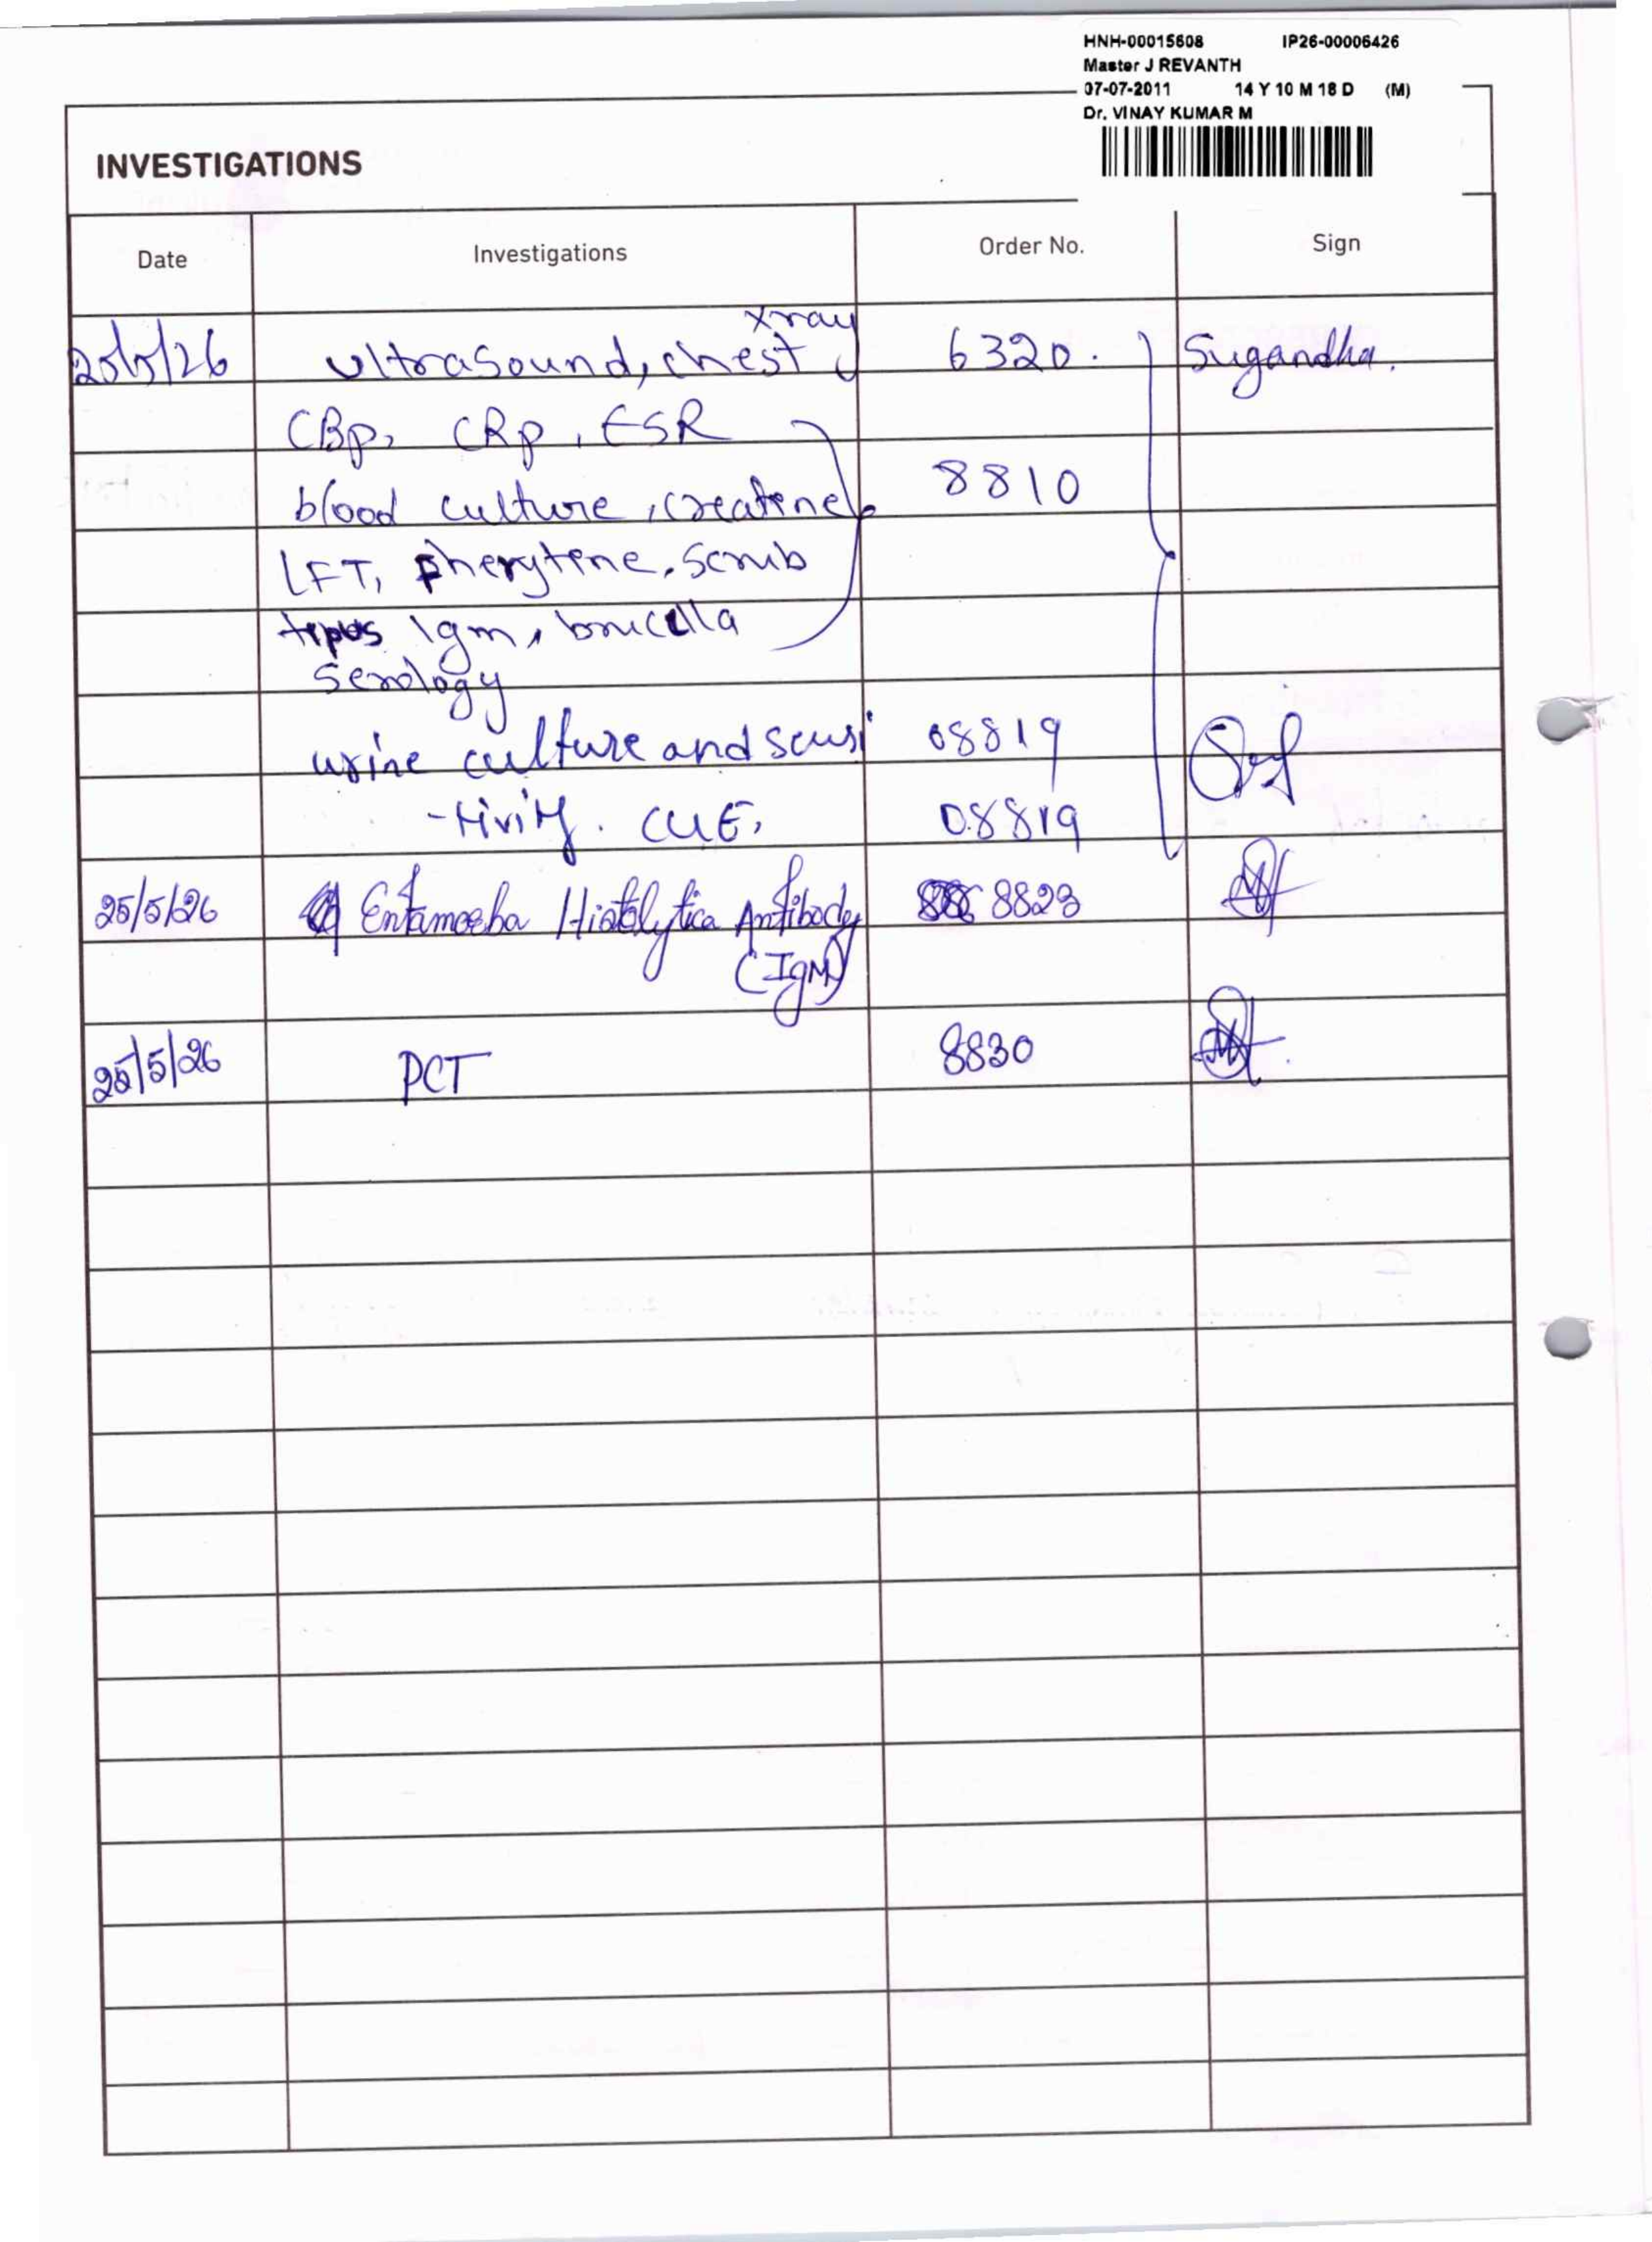 HNH-00015608 IP26-00006426
Master J REVANTH
07-07-2011 14 Y 10 M 18 D (M)
Dr. VINAY KUMAR M
INVESTIGATIONS
Date Investigations Order No. Sign
xray
25/5/26 ultrasound, chest 6320. Sugandha.
CBp, CRp, ESR
8810
blood culture, creatine
LFT, pherytene, Scrub
typus Igm, brucella
serology
urine culture and sensi 08819
-tivity. CUE, 08819
25/5/26 Entamoeba Histolytica Antibody 8823
(IgM)
25/5/26 PCT 8830